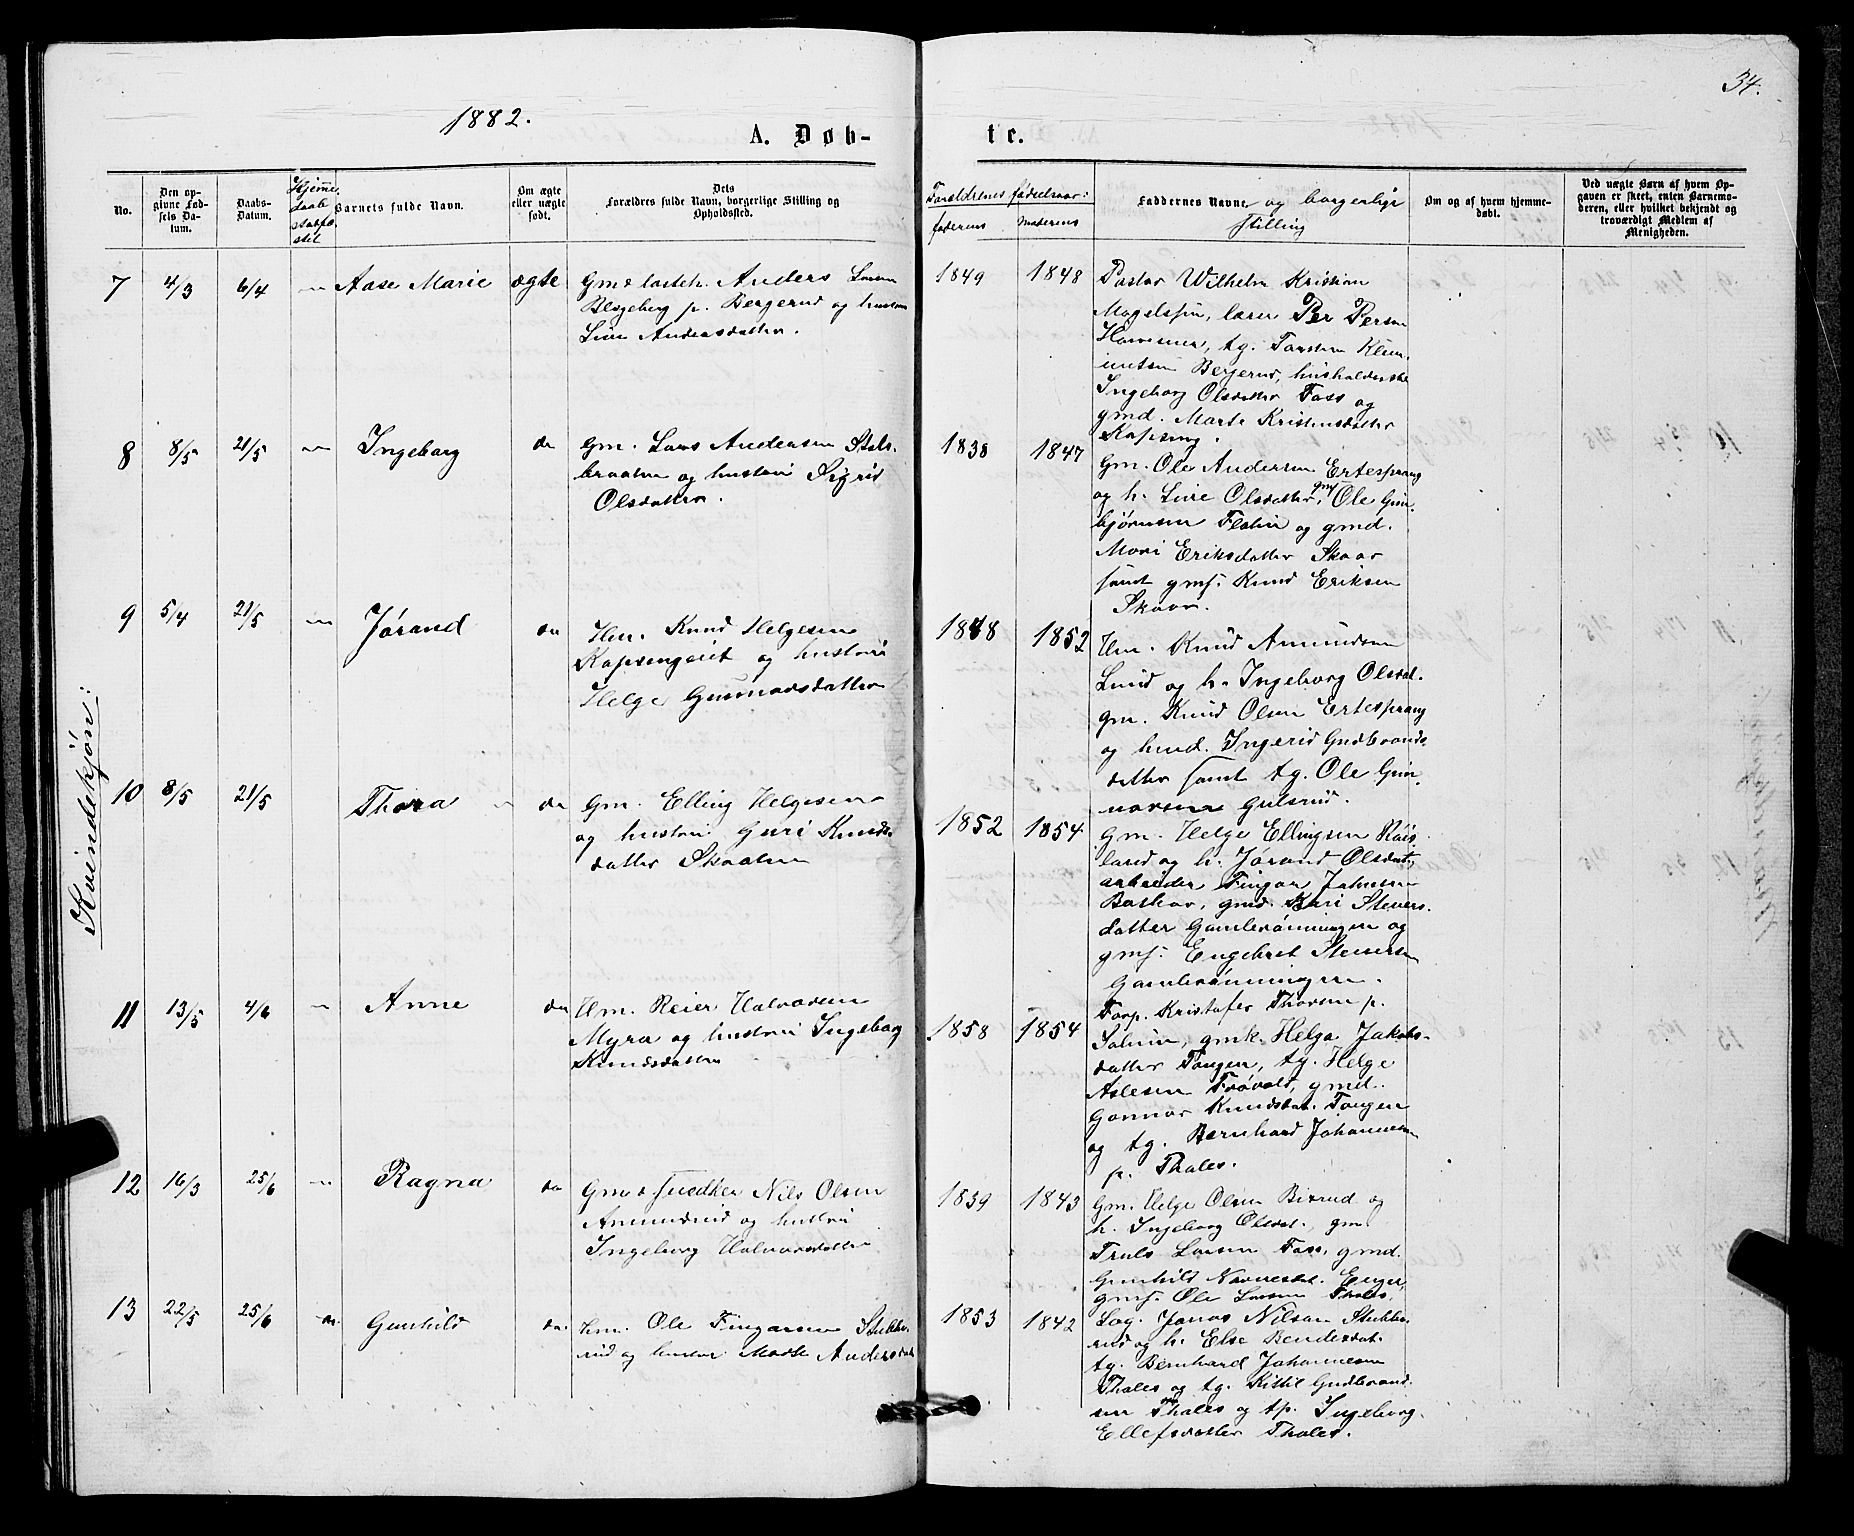 34.
1882.
A. Døb-
te.
No.
Den op-
givne Fød-
sels Da-
tum.
Daabs-
Datum.
Hjemme
daab
Barnets fulde Navn.
Om ægte
eller uægte
født.
Dets
Forældres fulde Navn, borgerlige Stilling og
Opholdssted.
Forældrenes fødselsaar:
faderens moderens
Faddernes Navne og borgerlige
stilling
Om og af hvem hjemme-
døbt.
Ved uægte Børn af hvem Op-
gaven er skeet, enten Barnemo-
deren, eller hvilket bekjendt og
troværdigt Medlem af
Menigheden.
Kvindekjøn:
7 4/3 6/4 Aase Marie ægte
Gm Anders Larsen
p. Bergerud og hustru
Andersdatter.
1849 1848
Pastor Wilhelm Kristian
Magelssen, lærer Per Person
tg. Torsten Klem-
metsen Bergerud, husholderske
Ingeborg Olsdatter Foss og
gmd. Marte Kristensdatter
Kapseng.
8 8/5 21/5 Ingeborg do
Gm. Lars Andersen Stils-
braaten og hustru Sigrid
Olsdatter.
1838 1847
Gm. Ole Andersen Ertesprang
og h. Live Olsdatter, gmf Ole Gun-
bjørnsen Flatin og gmd.
Mari Eriksdatter Skaar
samt gmf. Knud Eriksen
Skaar.
9 5/4 21/5 Jørand do
Hm. Knud Helgesen
Kapsengeiet og hustru
Helge Gunnarsdatter
1848 1852
Hm. Knud Amundsen
Lund og h. Ingeborg Olsdat.
gm. Knud Olsen Ertesprang
og hmd. Ingerid Gudbrands-
datter samt tg. Ole Gun-
narsen Gulsrud.
10 8/5 21/5 Thora do
Gm. Elling Helgesen
og hustru Guri Knuds-
datter Skaalen
1852 1854
Gm. Helge Ellingsen
og h. Jørand Olsdat,
arbeider Fingar Johnsen
gmd. Kari Steners-
datter Gamlerønningen og
gmf. Engebret Stenersen
Gamlerønningen.
11 13/5 4/6 Anne do
Hm. Reier Halvorsen
Myra og hustru Ingeborg
Knudsdatter
1858 1854
Forp. Kristofer Thoresen p.
gmk. Helga Jakobs-
datter Tangen, tg. Helge
Aslesen Frøvold, gmd.
Gonnor Knudsdat. Tangen
og tg. Bernhard Johannesen
p. Thales.
12 16/3 25/6 Ragna do
Gm & snedker Nils Olsen
Amundrud og hustru
Ingeborg Halvorsdatter
1839 1843
Gm. Helge Olsen og
h. Ingeborg Olsdat. gm
Truls Larsen Foss, gmd.
Gunhild
gmf. Ole Larsen Thales,
13 22/5 25/6 Gunhild do.
Hm. Ole Fingarsen Stubbe-
rud og hustru Marte Andersdat
1853 1842
Log. Jonas Nilsen Stubbe-
rud og h. Else Bendixdat.
tg. Bernhard Johannesen
Thales og tg. Kittil Gudbrand-
sen Thales og tp. Ingeborg
Ellefsdatter Thales.